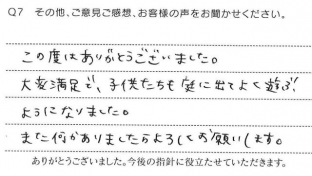 Q7 その他、ご意見ご感想、お客様の声をお聞かせください。
この度はありがとうございました。
大変満足で、子供たちも庭に出てよく遊ぶ
ようになりました。
また何かありましたらよろしくお願いします。
ありがとうございました。今後の指針に役立たせていただきます。